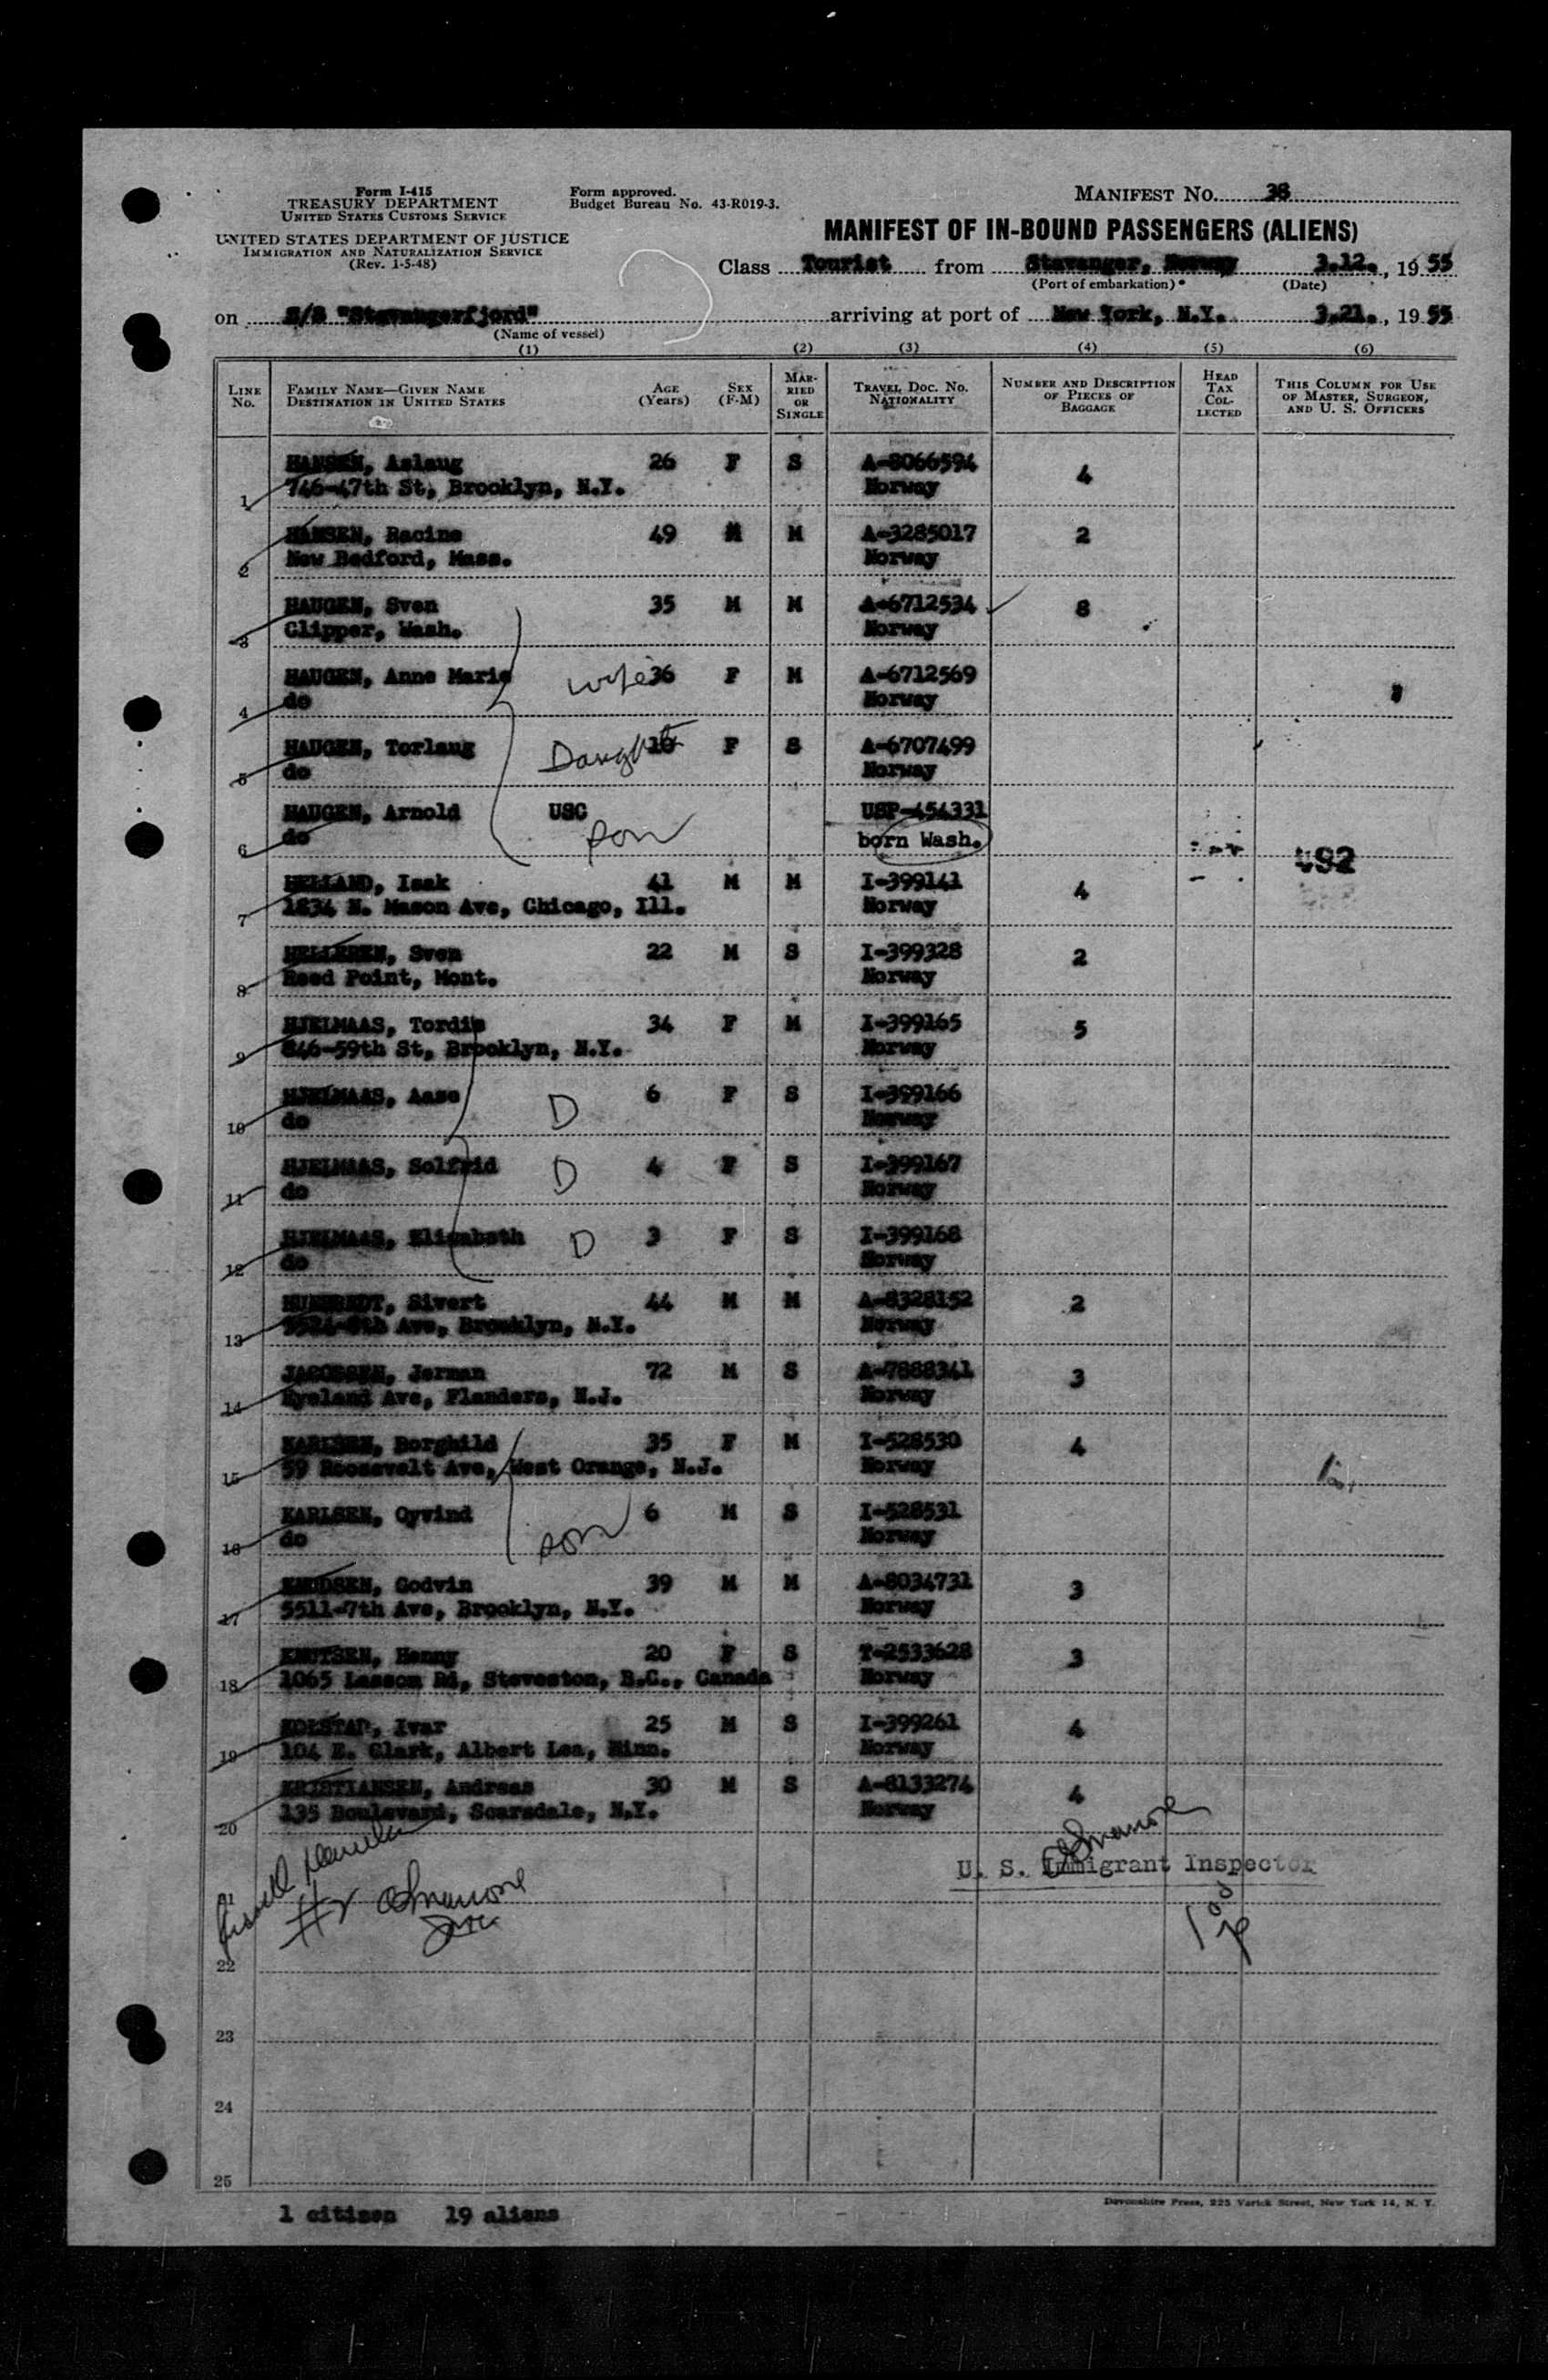 Form I-415
TREASURY DEPARTMENT
UNITED STATES CUSTOMS SERVICE
UNITED STATES DEPARTMENT OF JUSTICE
IMMIGRATION AND NATURALIZATION SERVICE
(Rev. 1-5-48)
Form approved.
Budget Bureau No. 43-R019-3.
MANIFEST NO. 38
MANIFEST OF IN-BOUND PASSENGERS (ALIENS)
Class Tourist from Stavanger, Norway 3.12., 1955
(Port of embarkation)* (Date)
on S/S "Stavangerfjord" arriving at port of New York, N.Y. 3.21., 1955
(Name of vessel)
(1) (2) (3) (4) (5) (6)
LINE NO. FAMILY NAME—GIVEN NAME DESTINATION IN UNITED STATES AGE (Years) SEX (F-M) MARRIED OR SINGLE TRAVEL DOC. NO. NATIONALITY NUMBER AND DESCRIPTION OF PIECES OF BAGGAGE HEAD TAX COLLECTED THIS COLUMN FOR USE OF MASTER, SURGEON, AND U. S. OFFICERS
HANSEN, Aslaug 26 F S A-8066594 4
1 746-47th St, Brooklyn, N.Y. Norway
HANSEN, Racine 49 M M A-3285017 2
2 New Bedford, Mass. Norway
HAUGEN, Sven 35 M M A-6712534 8
3 Clipper, Wash. Norway
HAUGEN, Anne Marie wife 36 F M A-6712569
4 do Norway
HAUGEN, Torlaug Daught 10 F S A-6707499
5 do Norway
HAUGEN, Arnold USC USP-454331
6 do son born Wash.
492
HELLAND, Isak 41 M M I-399141 4
7 1834 N. Mason Ave, Chicago, Ill. Norway
HELLEREN, Sven 22 M S I-399328 2
8 Reed Point, Mont. Norway
HJELMAAS, Tordis 34 F M I-399165 5
9 846-59th St, Brooklyn, N.Y. Norway
HJELMAAS, Aase D 6 F S I-399166
10 do Norway
HJELMAAS, Solfrid D 4 F S I-399167
11 do Norway
HJELMAAS, Elisabeth D 3 F S I-399168
12 do Norway
Sivert 44 M M A-8328152 2
13 Ave, Brooklyn, N.Y. Norway
JACOBSEN, Jerman 72 M S A-7888341 3
14 Hyeland Ave, Flanders, N.J. Norway
KARLSEN, Borghild 35 F M I-528530 4
15 59 Roosevelt Ave, West Orange, N.J. Norway
KARLSEN, Oyvind 6 M S I-528531
16 do son Norway
KNUDSEN, Godvin 39 M M A-8034731 3
17 5511-7th Ave, Brooklyn, N.Y. Norway
KNUTSEN, Henny 20 F S T-2533628 3
18 1065 Lasson Rd, Steveston, B.C., Canada Norway
KOLSTAD, Ivar 25 M S I-399261 4
19 104 E. Clark, Albert Lea, Minn. Norway
KRISTIANSEN, Andreas 30 M S A-8133274 4
20 135 Boulevard, Scarsdale, N.Y. Norway
U. S. Immigrant Inspector
21
#2
22
23
24
25
1 citizen 19 aliens
Devonshire Press, 225 Varick Street, New York 14, N. Y.